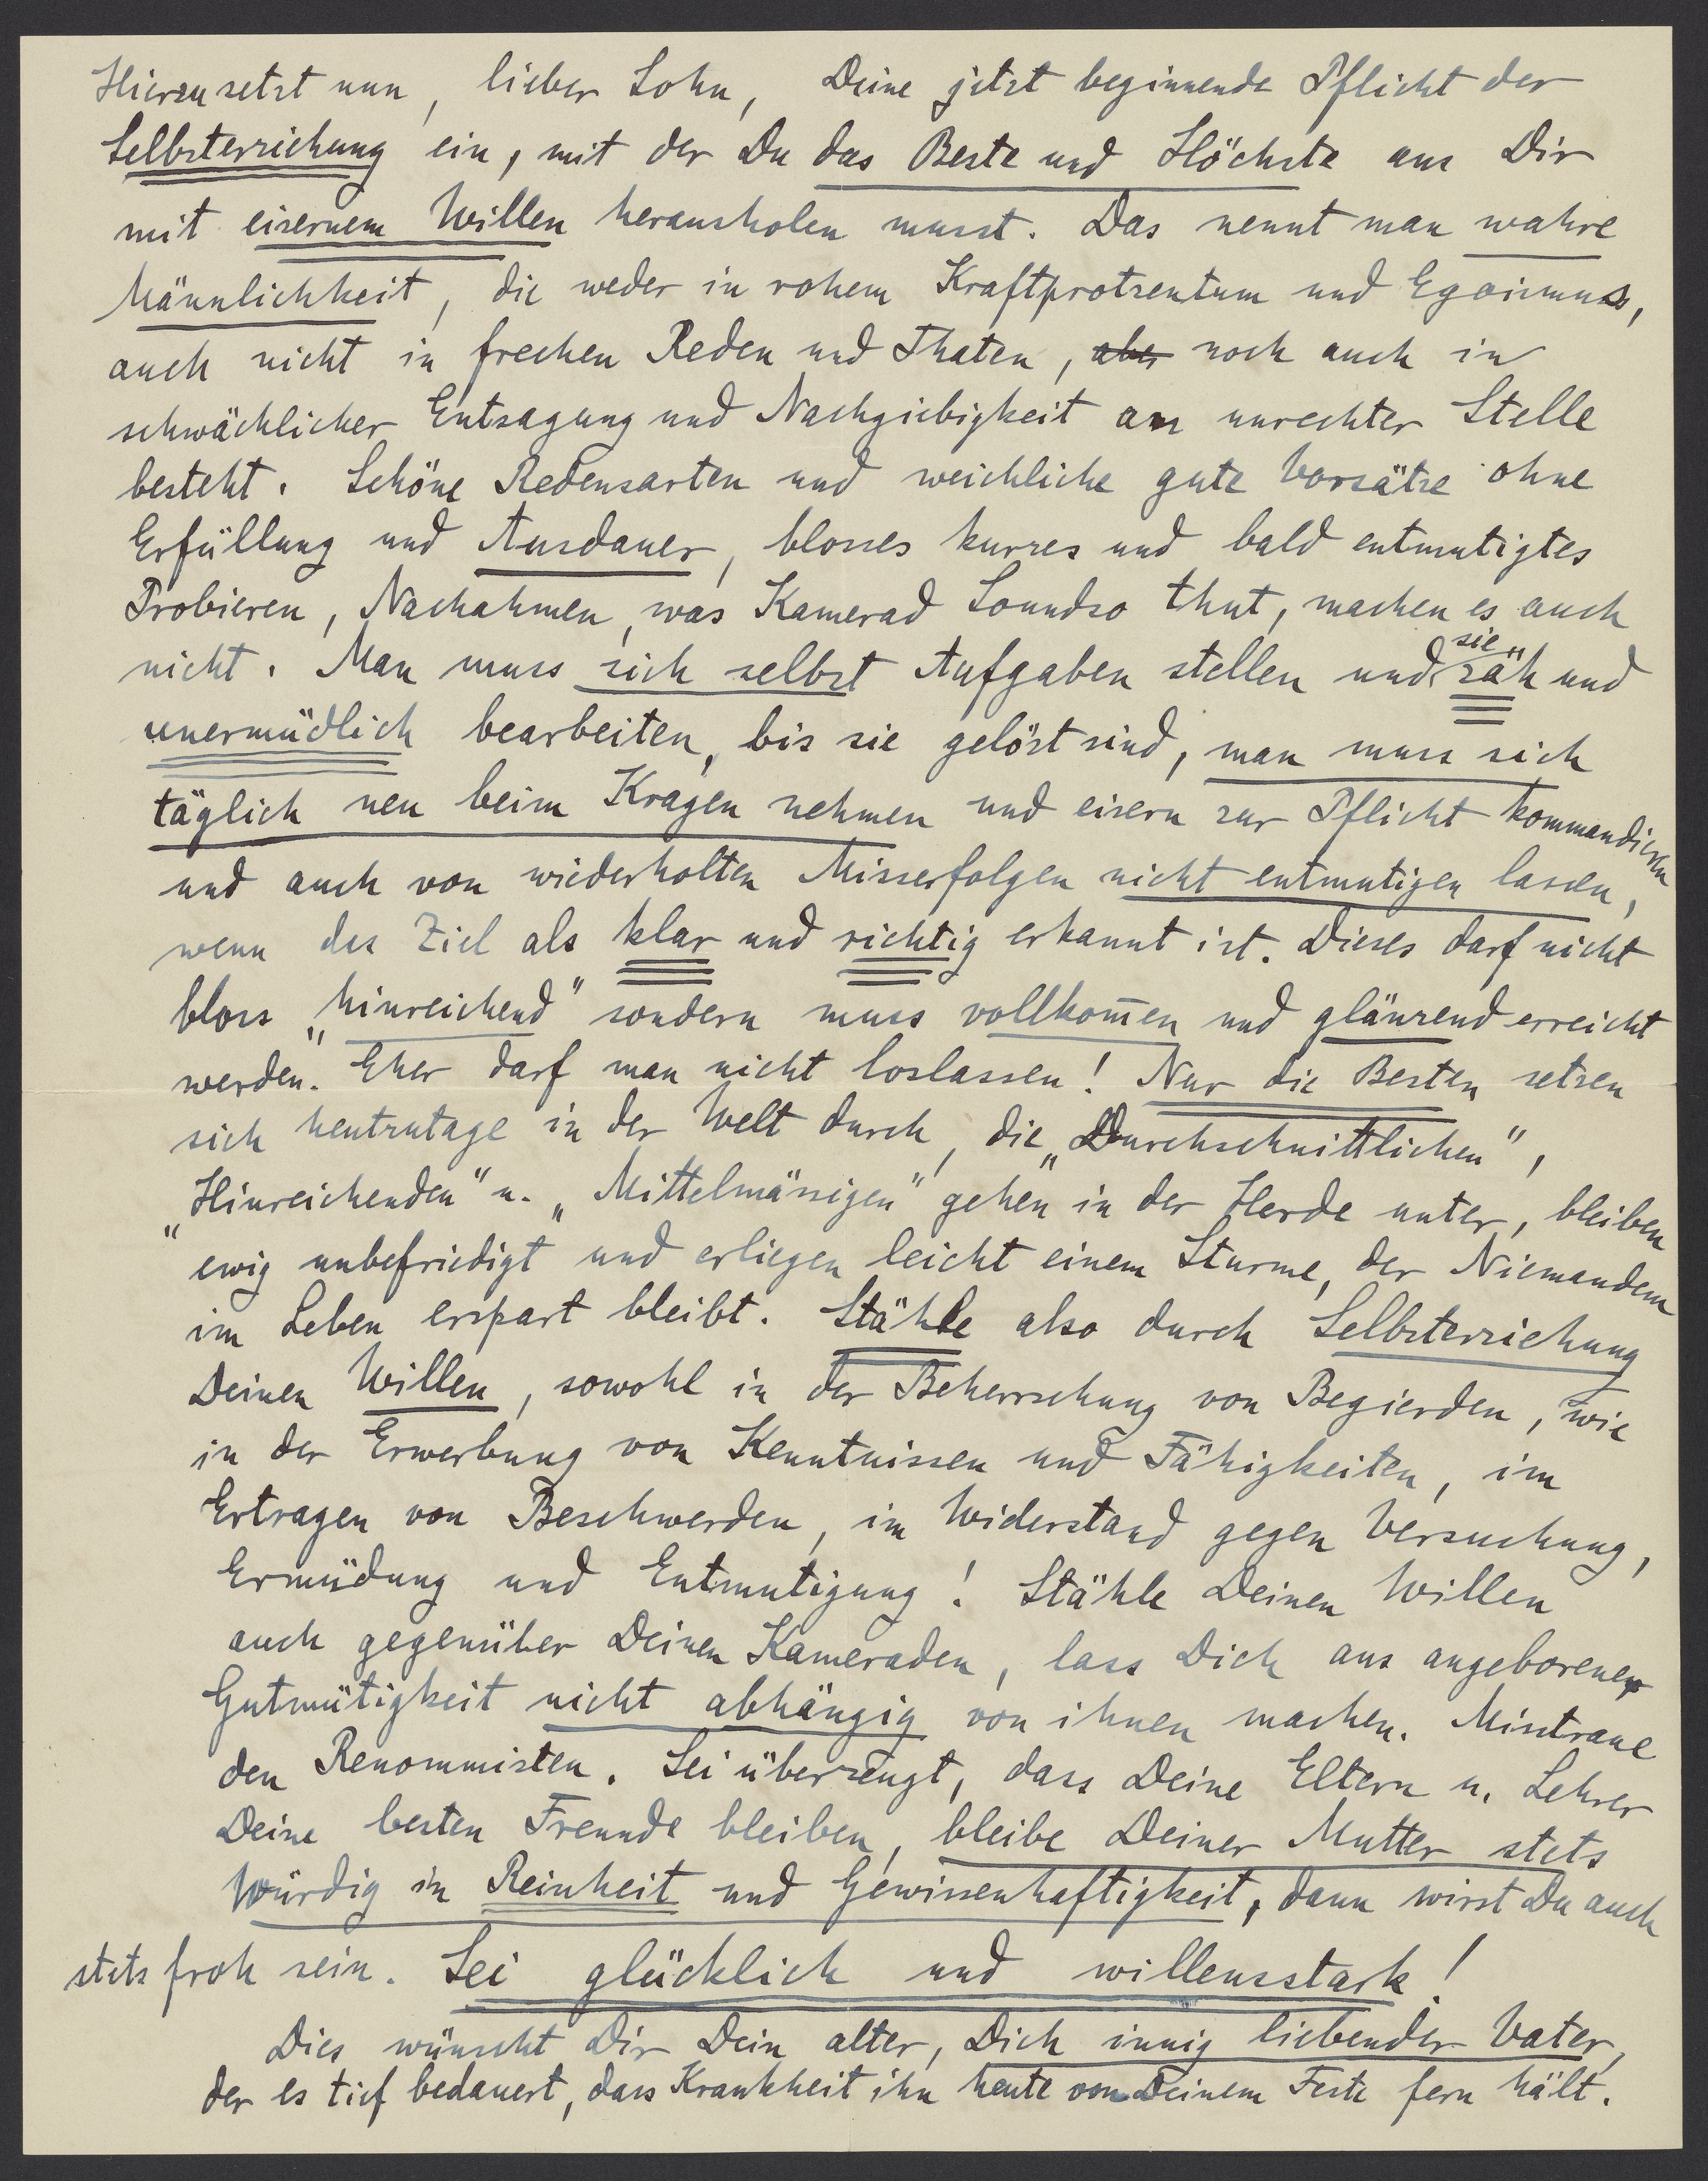 Hierzu setzt nun, lieber Sohn, Deine jetzt beginnende Pflicht der
Selbsterziehung ein, mit der Du das Beste und Höchste aus Dir
mit eisernem Willen herausholen musst. Das nennt man wahre
Männlichkeit, die weder in rohem Kraftprotzentum und Egoismus,
auch nicht in frechen Reden und Thaten, aber noch auch in
schwächlicher Entsagung und Nachgiebigkeit an unrechter Stelle
besteht. Schöne Redensarten und weichliche gute Vorsätze ohne
Erfüllung und Ausdauer, blosses kurzes und bald entmutigtes
Probieren, Nachahmen, was Kamerad Soundso thut, machen es auch
nicht. Man muss sich selbst Aufgaben stellen und sie zäh und
unermüdlich bearbeiten, bis sie gelöst sind, man muss sich
täglich neu beim Kragen nehmen und eisern zur Pflicht kommandieren
und auch von wiederholten Misserfolgen nicht entmutigen lassen,
wenn das Ziel als klar und richtig erkannt ist. Dieses darf nicht
bloss „hinreichend" sondern muss vollkom̅en und glänzend erreicht
werden. Eher darf man nicht loslassen! Nur die Besten setzen
sich heutzutage in der Welt durch, die „Durchschnittlichen",
„Hinreichenden" u. „Mittelmässigen" gehen in der Herde unter, bleiben
ewig unbefriedigt und erliegen leicht einem Sturme, der Niemandem
im Leben erspart bleibt. Stähle also durch Selbsterziehung
Deinen Willen, sowohl in der Beherrschung von Begierden, wie
in der Erwerbung von Kenntnissen und Fähigkeiten, im
Ertragen von Beschwerden, im Widerstand gegen Versuchung,
Ermüdung und Entmutigung! Stähle Deinen Willen
auch gegenüber Deinen Kameraden, lass Dich aus angeborener
Gutmütigkeit nicht abhängig von ihnen machen. Misstraue
den Renommisten. Sei überzeugt, dass Deine Eltern u. Lehrer
Deine besten Freunde bleiben, bleibe Deiner Mutter stets
würdig in Reinheit und Gewissenhaftigkeit, dann wirst Du auch
stets froh sein. Sei glücklich und willensstark!
Dies wünscht Dir Dein alter, Dich innig liebender Vater,
der es tief bedauert, dass Krankheit ihn heute von Deinem Feste fern hält.